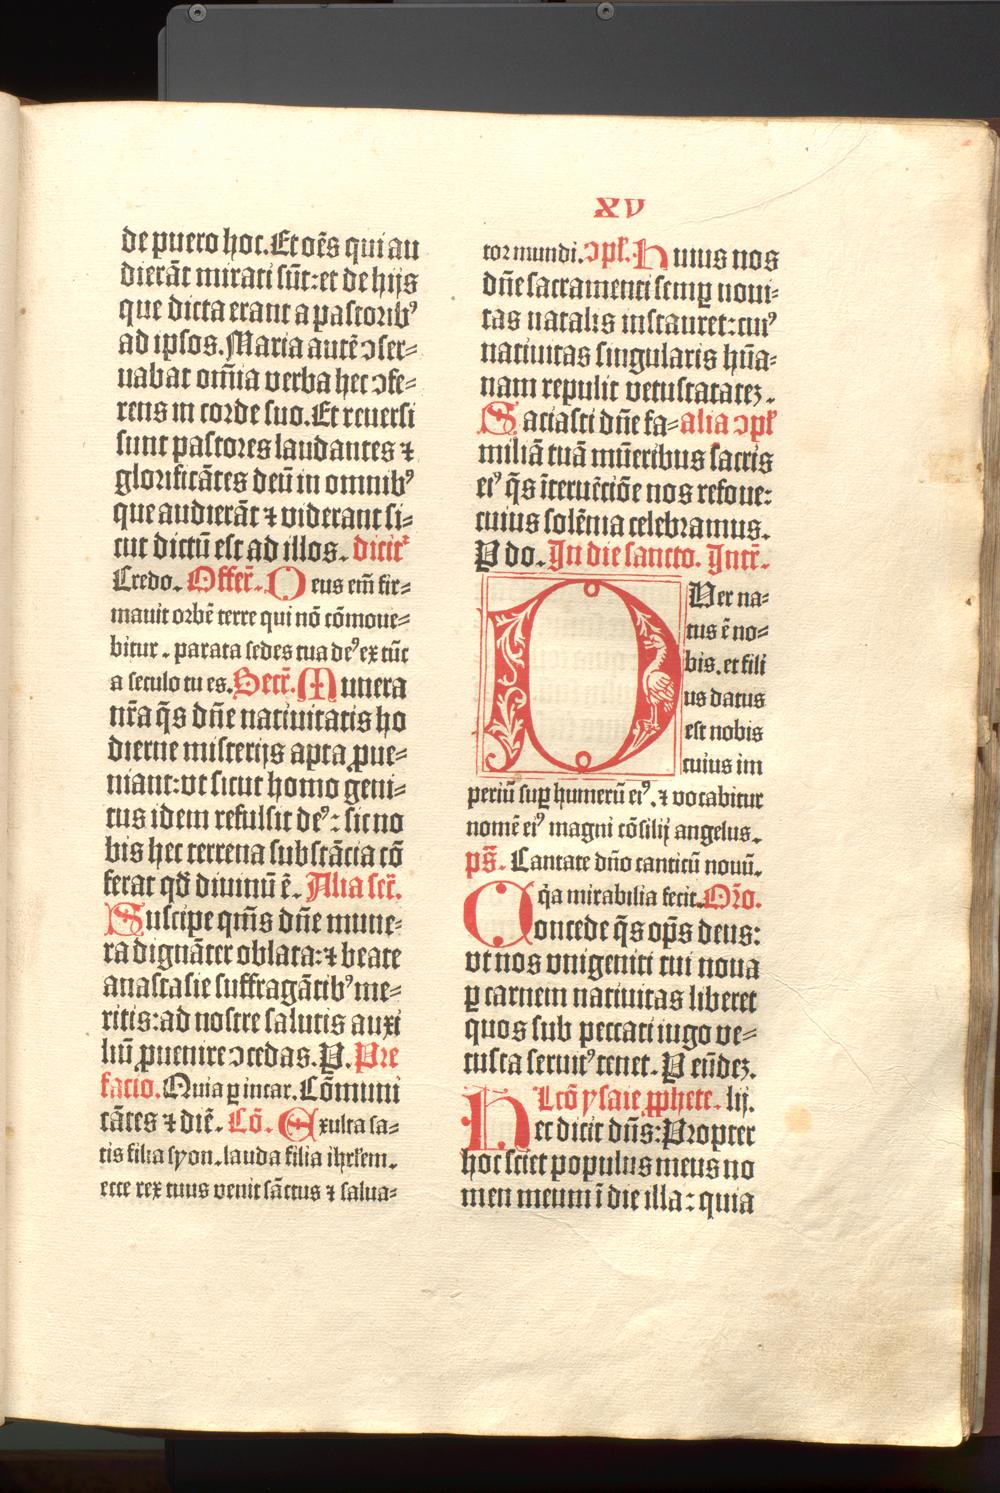 XV
de puero hoc. Et oēs qui au
dierāt mirati sūt: et de hijs
que dicta erant a pastoribꝰ
ad ipsos. Maria autē ɔser⸗
uabat om̄ia verba hec ɔfe⸗
rens in corde suo. Et reuersi
sunt pastores laudantes ⁊
glorificātes deū in omnibꝰ
que audierāt ⁊ viderant si⸗
cut dictū est ad illos. dicit᷑
Credo. Offer̄. Deus em̄ fir⸗
mauit orbē terre qui nō cōmoue⸗
bitur. parata sedes tua deꝰ ex tūc
a seculo tu es. Secr̄. Munera
nr̄a q̄s dn̄e natiuitatis ho
dierne misterijs apta ꝓue⸗
niant: vt sicut homo geni⸗
tus idem refulsit deꝰ: sic no
bis hec terrena substācia cō
ferat qd̄ diuinū ē. Alia scr̄.
Suscipe qm̄s dn̄e mune⸗
ra dignāter oblata: ⁊ beate
anastasie suffragātibꝰ me⸗
ritis: ad nostre salutis auxi
liū ꝓuenire ɔcedas. P. Pre
facio. Quia ꝑ incar. Cōmuni
cātes ⁊ diē. Cō. Exulta sa⸗
tis filia syon. lauda filia ihrl̄em.
ecce rex tuus venit sāctus ⁊ salua⸗
tor mundi. ɔpl̄. Huius nos
dn̄e sacramenti semꝑ noui⸗
tas natalis instauret: cuiꝰ
natiuitas singularis hūa⸗
nam repulit vetustatatez.
Saciasti dn̄e fa⸗ alia ɔpl̄
miliā tuā mūeribus sacris
eiꝰ q̄s īteruētiōe nos refoue:
cuius solēnia celebramus.
P do. In die sancto. Intr̄.
PVer na⸗
tus ē no⸗
bis. et fili
us datus
est nobis
cuius im
periū suꝑ humerū eiꝰ. ⁊ vocabitur
nomē eiꝰ magni cōsilij angelus.
ps̄. Cantate dn̄o canticū nouū.
q̄a mirabilia fecit. Or̄o.
Concede q̄s op̄s deus:
vt nos vnigeniti tui noua
ꝑ carnem natiuitas liberet
quos sub peccati iugo ve⸗
tusta seruitꝰ tenet. P eūdez.
Lcō ysaie ꝓphete. lij.
Hec dicit dn̄s: Propter
hoc sciet populus meus no
men meum ī die illa: quia